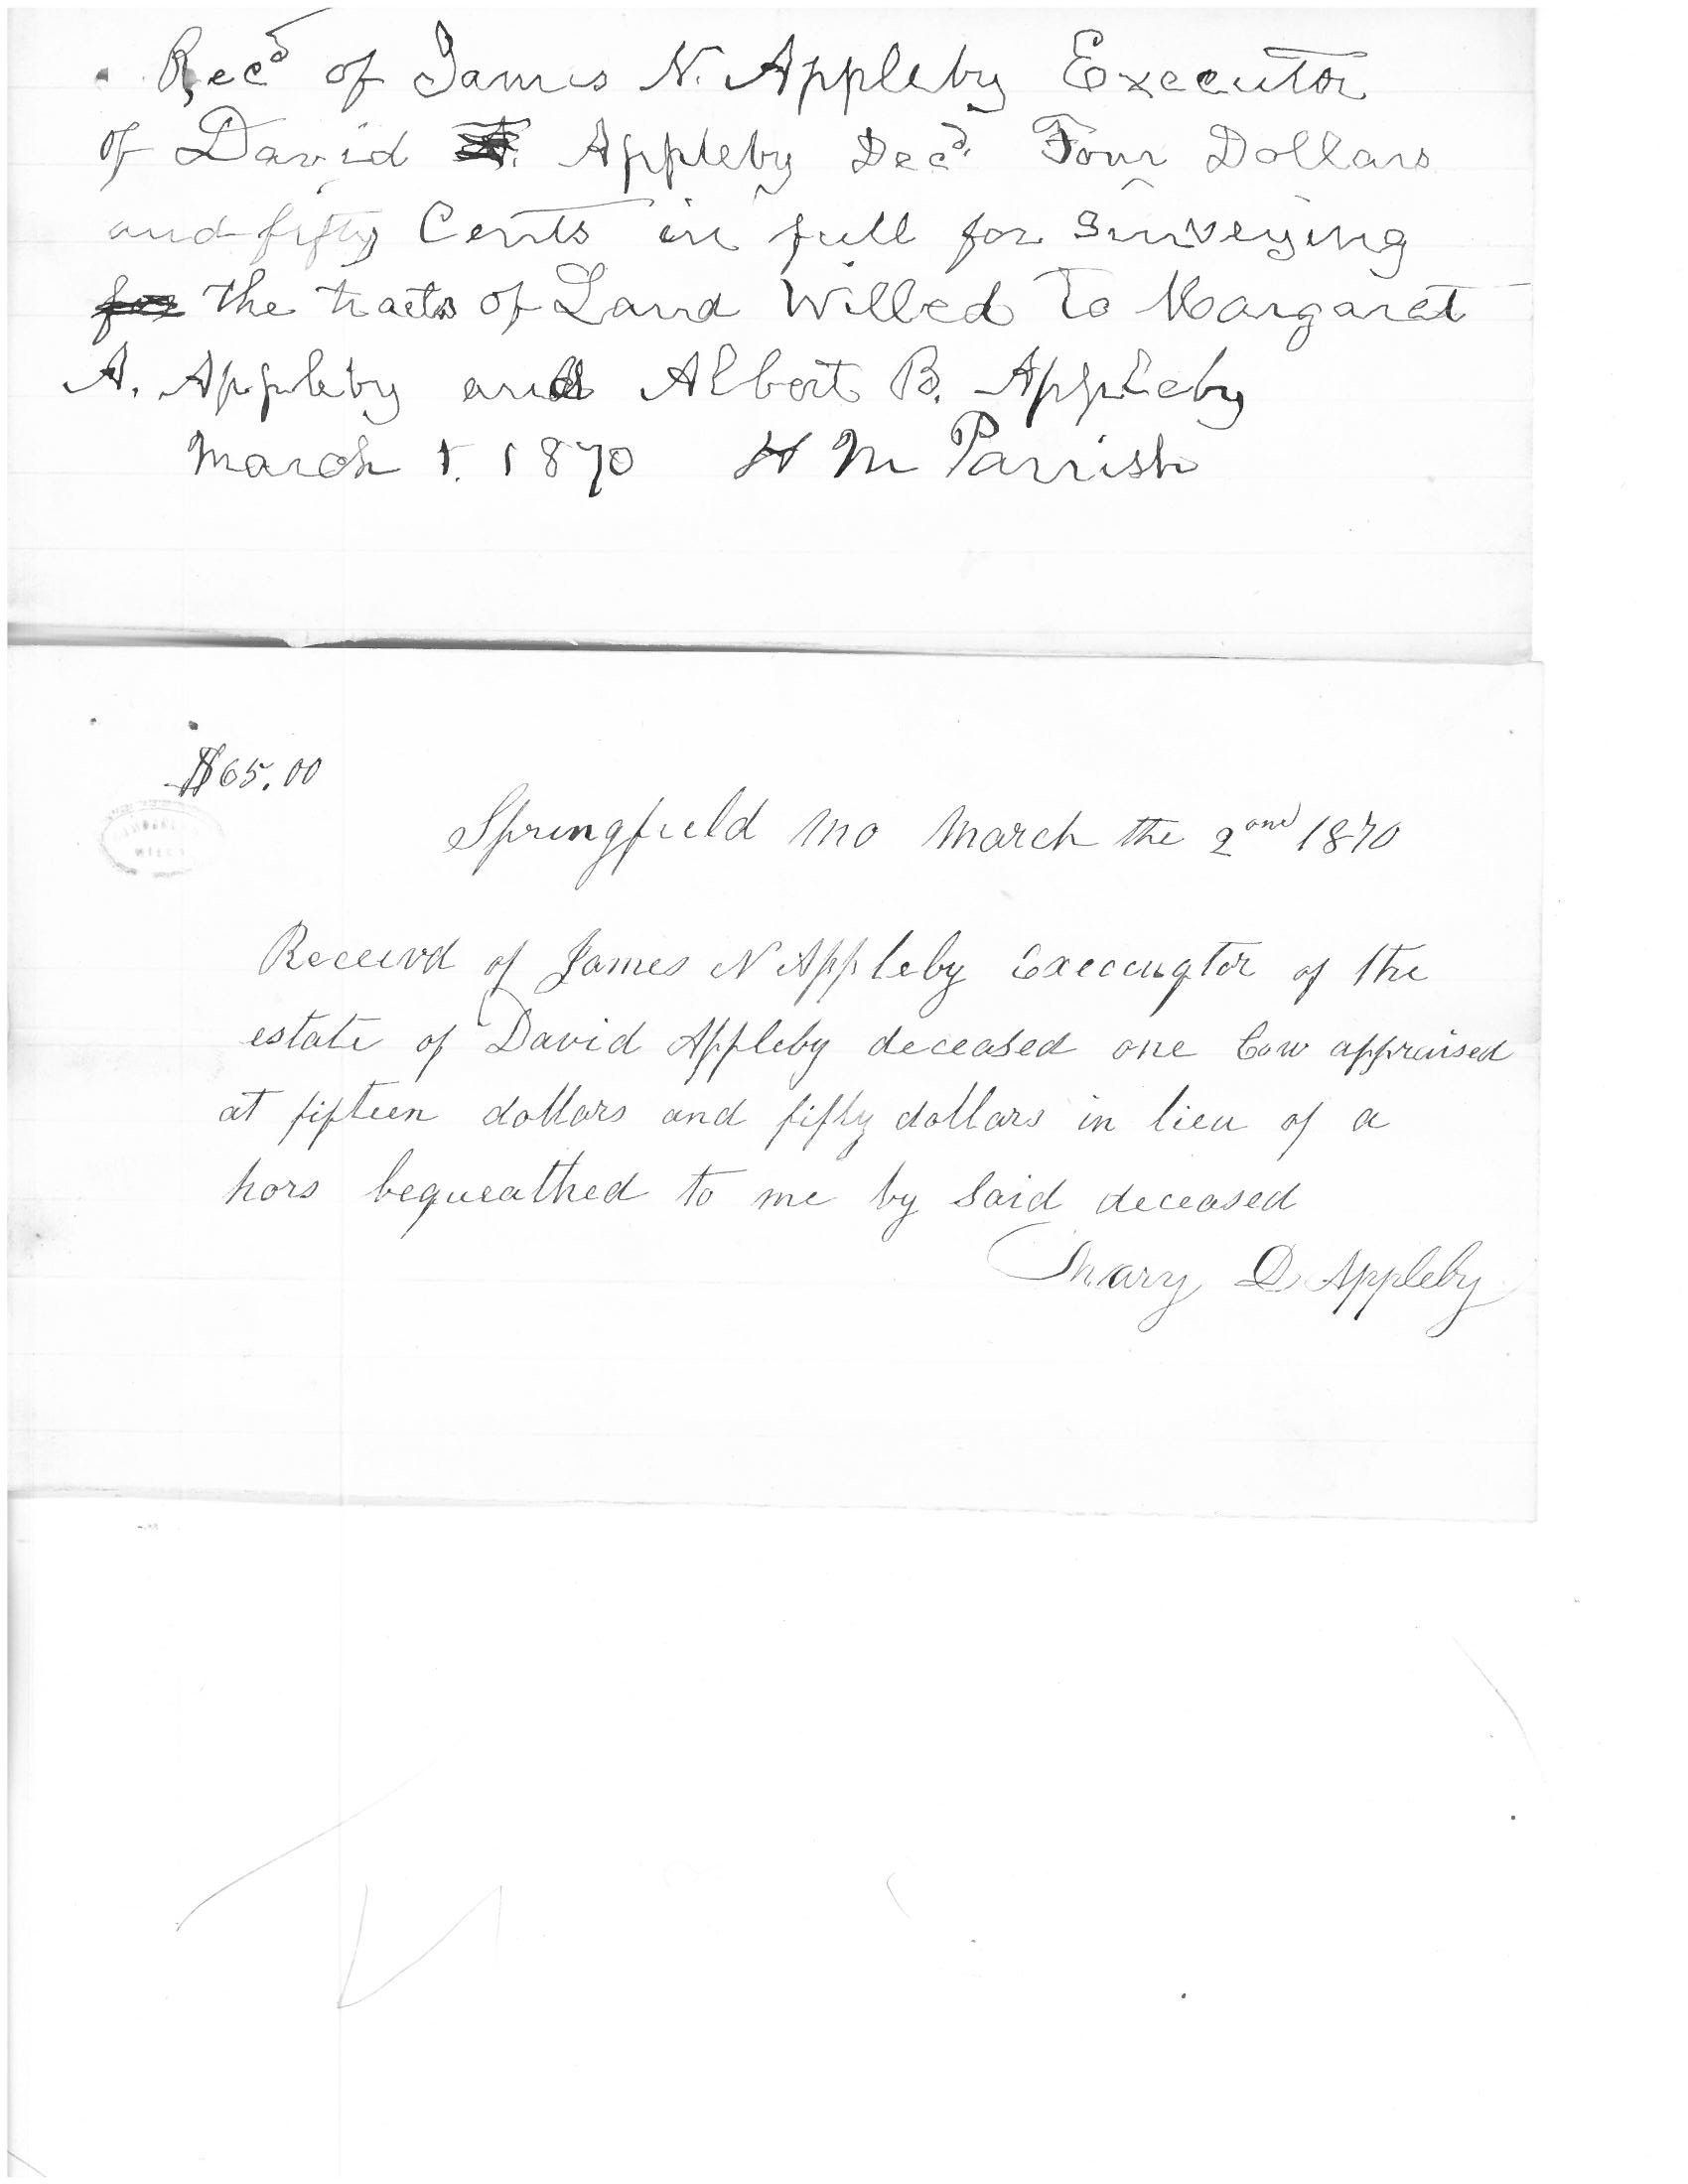 Recd of James N. Appleby Executor
of David Appleby Decd. Four Dollars
and fifty Cents in full for Surveying
for the tracts of Land Willed To Margaret
A. Appleby and Albert B. Appleby
March 1. 1870 H M Parrish
$65.00
Springfield Mo March the 2ond 1870
Receivd of James N Appleby Execcugtor of the
estate of David Appleby deceased one Cow appraised
at fifteen dollars and fifty dollars in lieu of a
hors bequeathed to me by Said deceased
Mary D Appleby